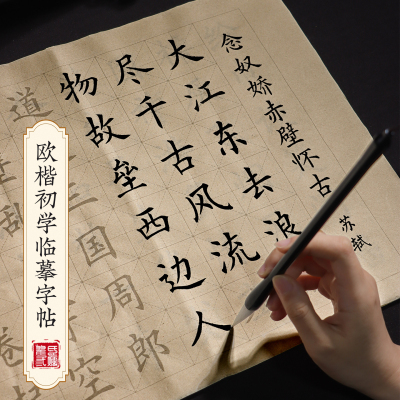 念奴娇赤壁怀古
苏轼
大江东去浪
尽千古风流
物故垒西边人
道三国周郎
乱空
卷
欧楷初学临摹字帖